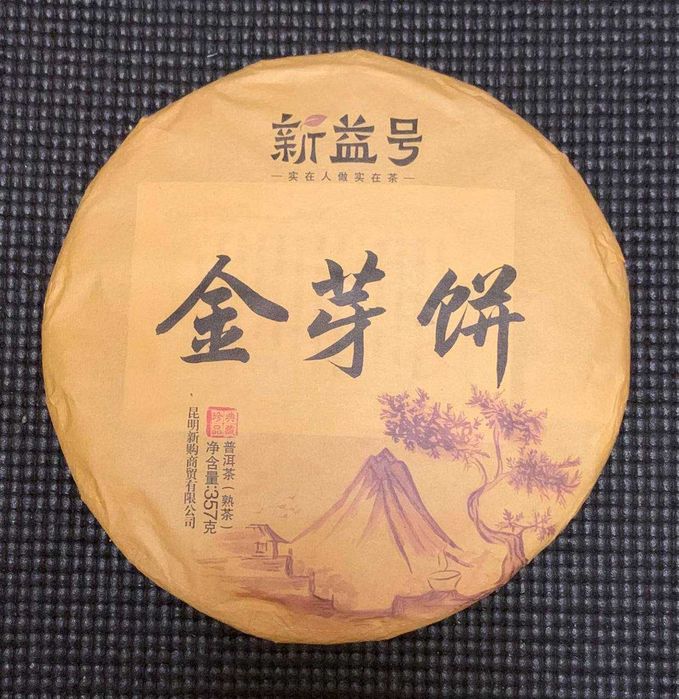 新益号
—实在人做实在茶—
金芽饼
典藏
珍品
普洱茶（熟茶）
净含量:357克
昆明新购商贸有限公司